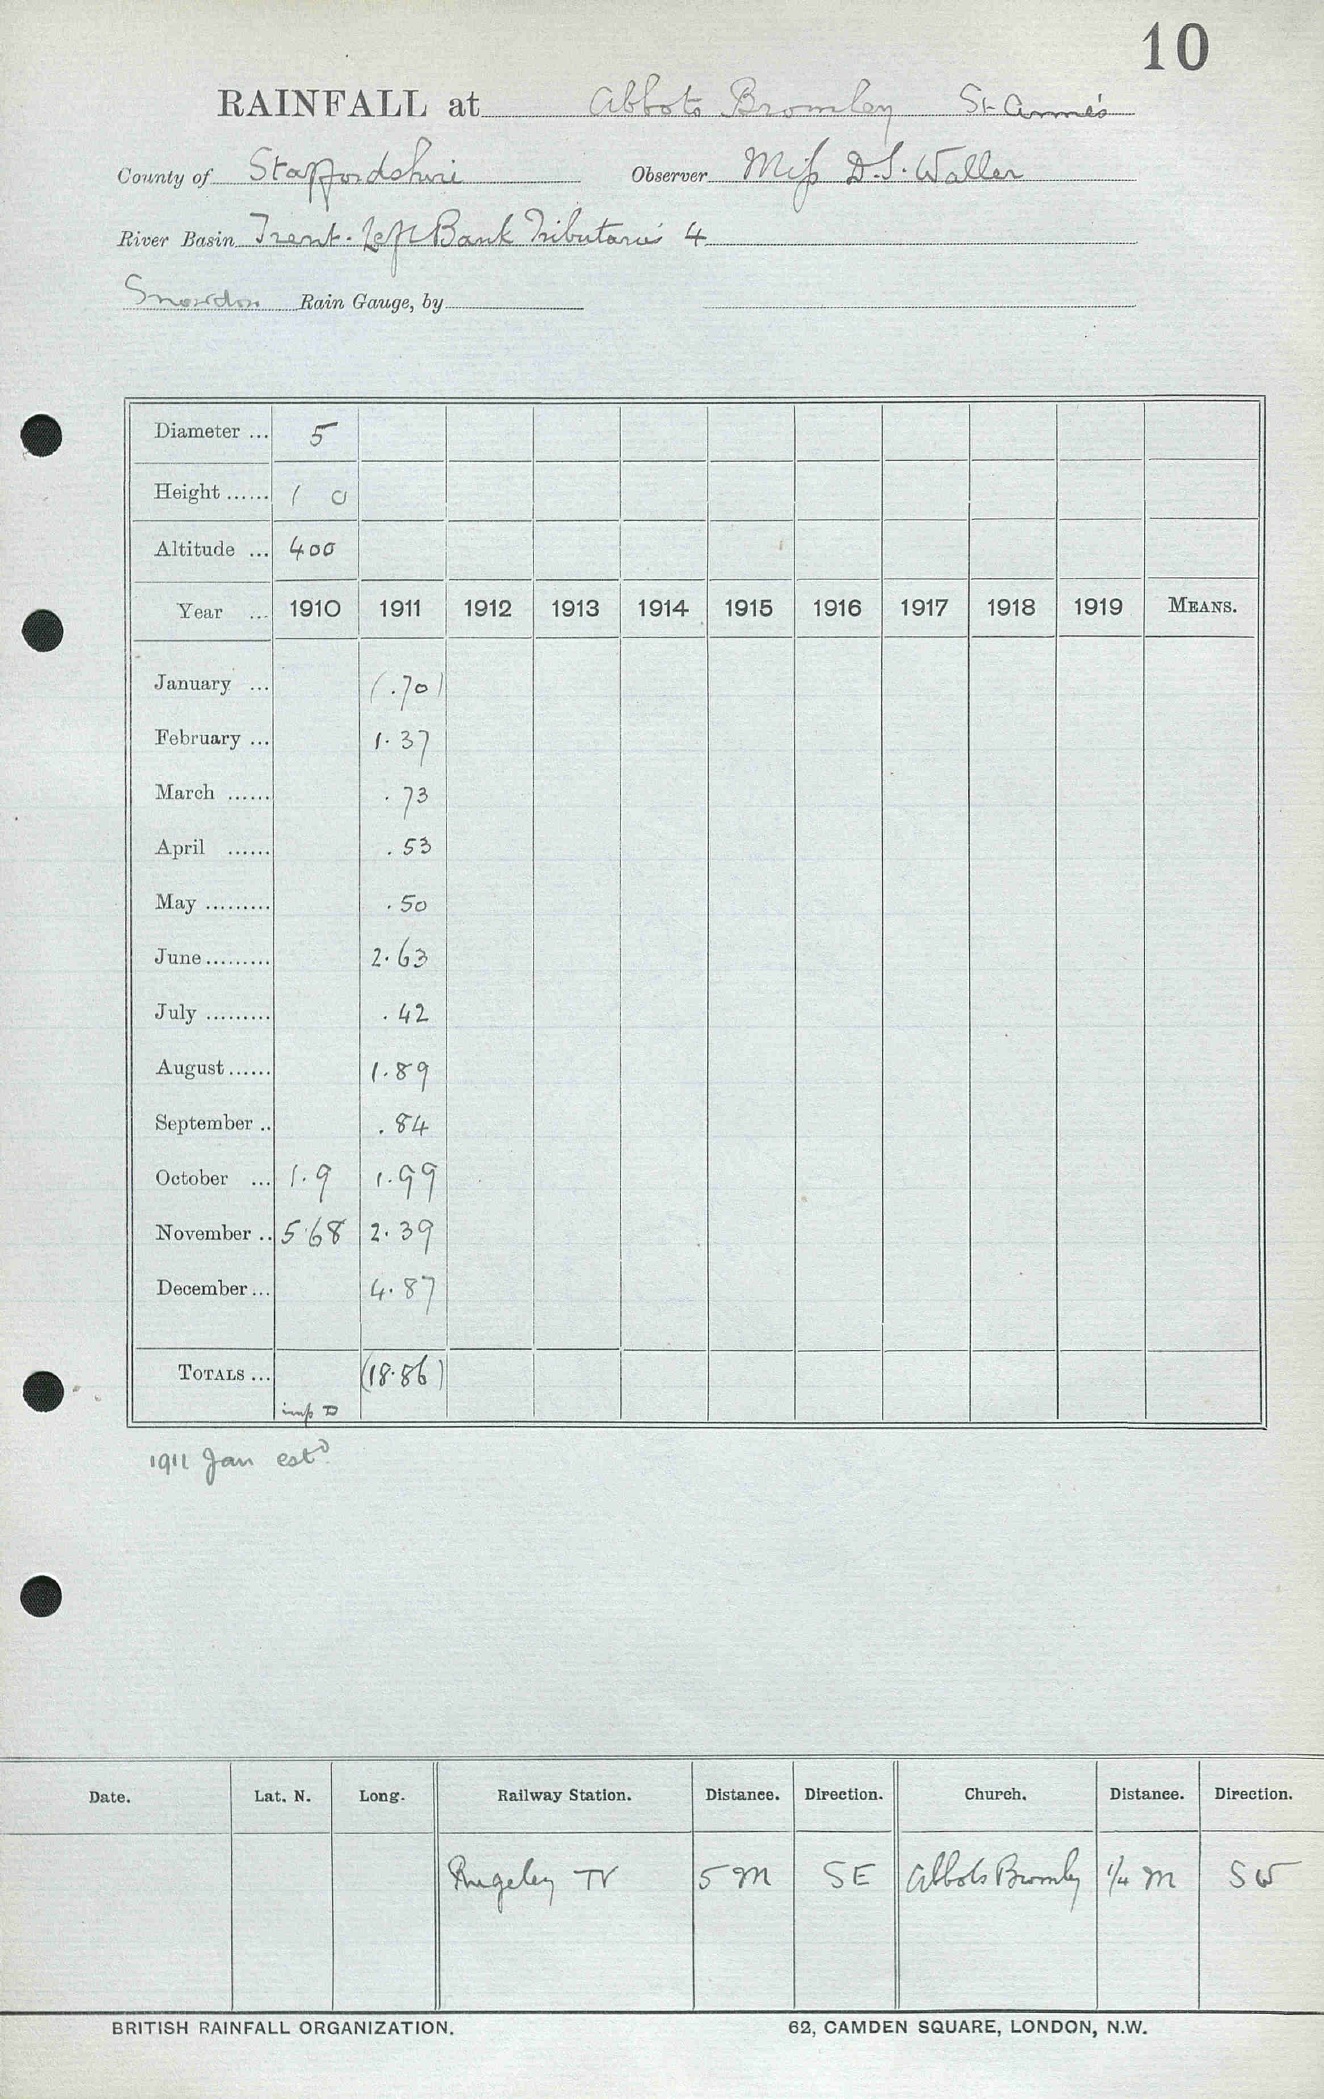 10
RAINFALL at Abbots Bromley St. Anne's
County of Staffordshire Observer Miss D.S. Waller
River Basin Trent. Left Bank Tributaries 4
Snowdon Rain Gauge, by
Diameter ... 5
Height ...... 1 0
Altitude ... 400
Year ... 1910 1911 1912 1913 1914 1915 1916 1917 1918 1919 MEANS.
January ... (.70)
February ... 1.37
March ...... .73
April ...... .53
May ......... .50
June ......... 2.63
July ......... .42
August ...... 1.89
September .. .84
October ... 1.9 1.99
November .. 5.68 2.39
December ... 4.87
TOTALS ... (18.86)
imp D
1911 Jan estd
Date. Lat. N. Long. Railway Station. Distance. Direction. Church. Distance. Direction.
Rugeley TV 5 M SE Abbots Bromley 1/4 M SW
BRITISH RAINFALL ORGANIZATION. 62, CAMDEN SQUARE, LONDON, N.W.